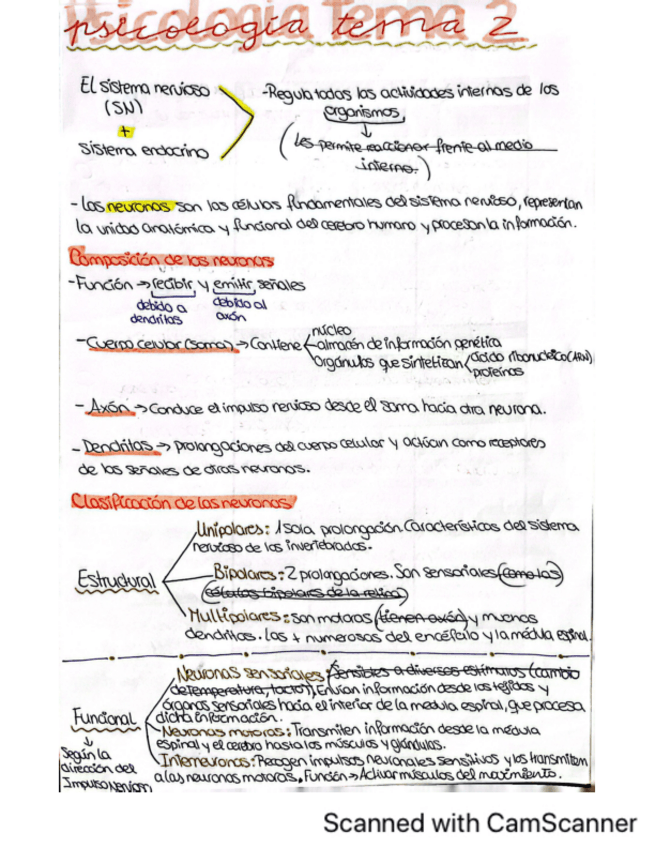 psicología tema 2
El sistema nervioso
(SN)
+
Sistema endocrino
-Regula todas las actividades internas de los
organismos,
(Les permite reaccionar frente al medio
interno.)
-Las neuronas son las células fundamentales del sistema nervioso, representan
la unidad anatómica y funcional del cerebro humano y procesan la información.
Composición de las neuronas
-Función → recibir y emitir señales
debido a
dendritas
debido al
axón
-Cuerpo celular (soma) → Contiene
núcleo
almacén de información genética
Orgánulos que sintetizan
ácido ribonucleico (ARN)
proteínas
- Axón → Conduce el impulso nervioso desde el soma hacia otra neurona.
- Dendritas → prolongaciones del cuerpo celular y actúan como receptores
de las señales de otras neuronas.
Clasificación de las neuronas
Estructural
Unipolares: 1 sola prolongación. Características del sistema
nervioso de los invertebrados.
Bipolares: 2 prolongaciones. Son sensoriales (como las)
(células bipolares de la retina)
Multipolares: son motoras (tienen axón) y muchas
dendritas. Las + numerosas del encéfalo y la médula espinal.
Funcional
↓
Según la
dirección del
Impulso Nervioso
Neuronas sensoriales: Sensibles a diversos estímulos (cambio
de temperatura, tacto). Envían información desde los tejidos y
órganos sensoriales hacia el interior de la médula espinal, que procesa
dicha información.
Neuronas motoras: Transmiten información desde la médula
espinal y el cerebro hasta los músculos y glándulas.
Interneuronas: Recogen impulsos neuronales sensitivos y los transmiten
a las neuronas motoras, Función → Activar músculos del movimiento.
Scanned with CamScanner